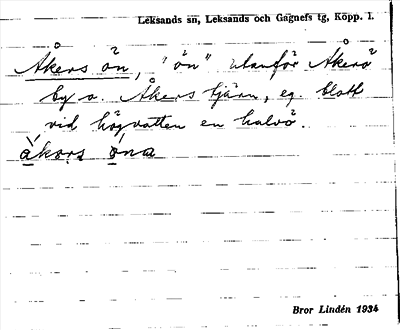 Leksands sn, Leksands och Gagnefs tg, Kopp. l.
Åkers ön, "ön" utanför Åkerö
by o. Åkers tjärn, eg. blott
vid högvatten en halvö.
åkərs öna
Bror Lindén 1934